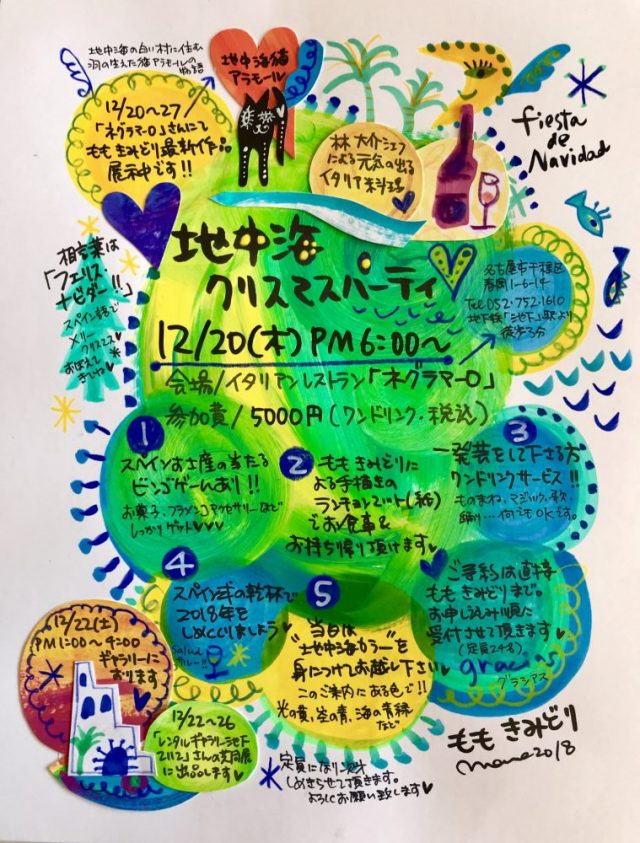 地中海の白い村に住む
羽の生えた猫アラモールの
物語
地中海猫
アラモール
12/20〜27
「ネグラマーロ」さんにて
もも きみどり最新作
展示中です!!
林 大介シェフ
による元気の出る
イタリア料理
fiesta
de
Navidad
相言葉は
「フェリス・
ナビダー!!」
スペイン語で
メリー
クリスマス♥
おぼえて
きてね♥
地中海
クリスマスパーティ
12/20(木) PM6:00〜
会場/イタリアンレストラン「ネグラマーロ」
参加費/5000円(ワンドリンク・税込)
名古屋市千種区
春岡1-6-14
Tel 052・752・1610
地下鉄「池下」駅より
徒歩3分
1
スペインお土産の当たる
ビンゴゲームあり!!
お菓子、フラメンコアクセサリーなど
しっかりゲット♥♥♥
2
もも きみどりに
よる手描きの
ランチョンマット(紙)
でお食事&
お持ち帰り頂けます♥
3
一発芸をして下さる方
ワンドリンクサービス!!
ものまね、マジック、歌、
踊り…何でもOKです。
4
スペイン式の乾杯で
2018年を
しめくくりましょう♥
Salud
サルー!!
5
当日は
"地中海カラー"を
身につけてお越し下さい♥
このご案内にある色で!!
光の黄、空の青、海の青緑
など
ご予約は直接
もも きみどりまで。
お申し込み順に
受付させて頂きます♥
(定員24名)
gracias
グラシアス
12/22(土)
PM1:00〜4:00
ギャラリーに
おります
12/22〜26
「レンタルギャラリー池下
2112」さんの共同展
に出品します♥
定員になり次第
しめきらせて頂きます。
よろしくお願い致します♥
もも きみどり
momo2018